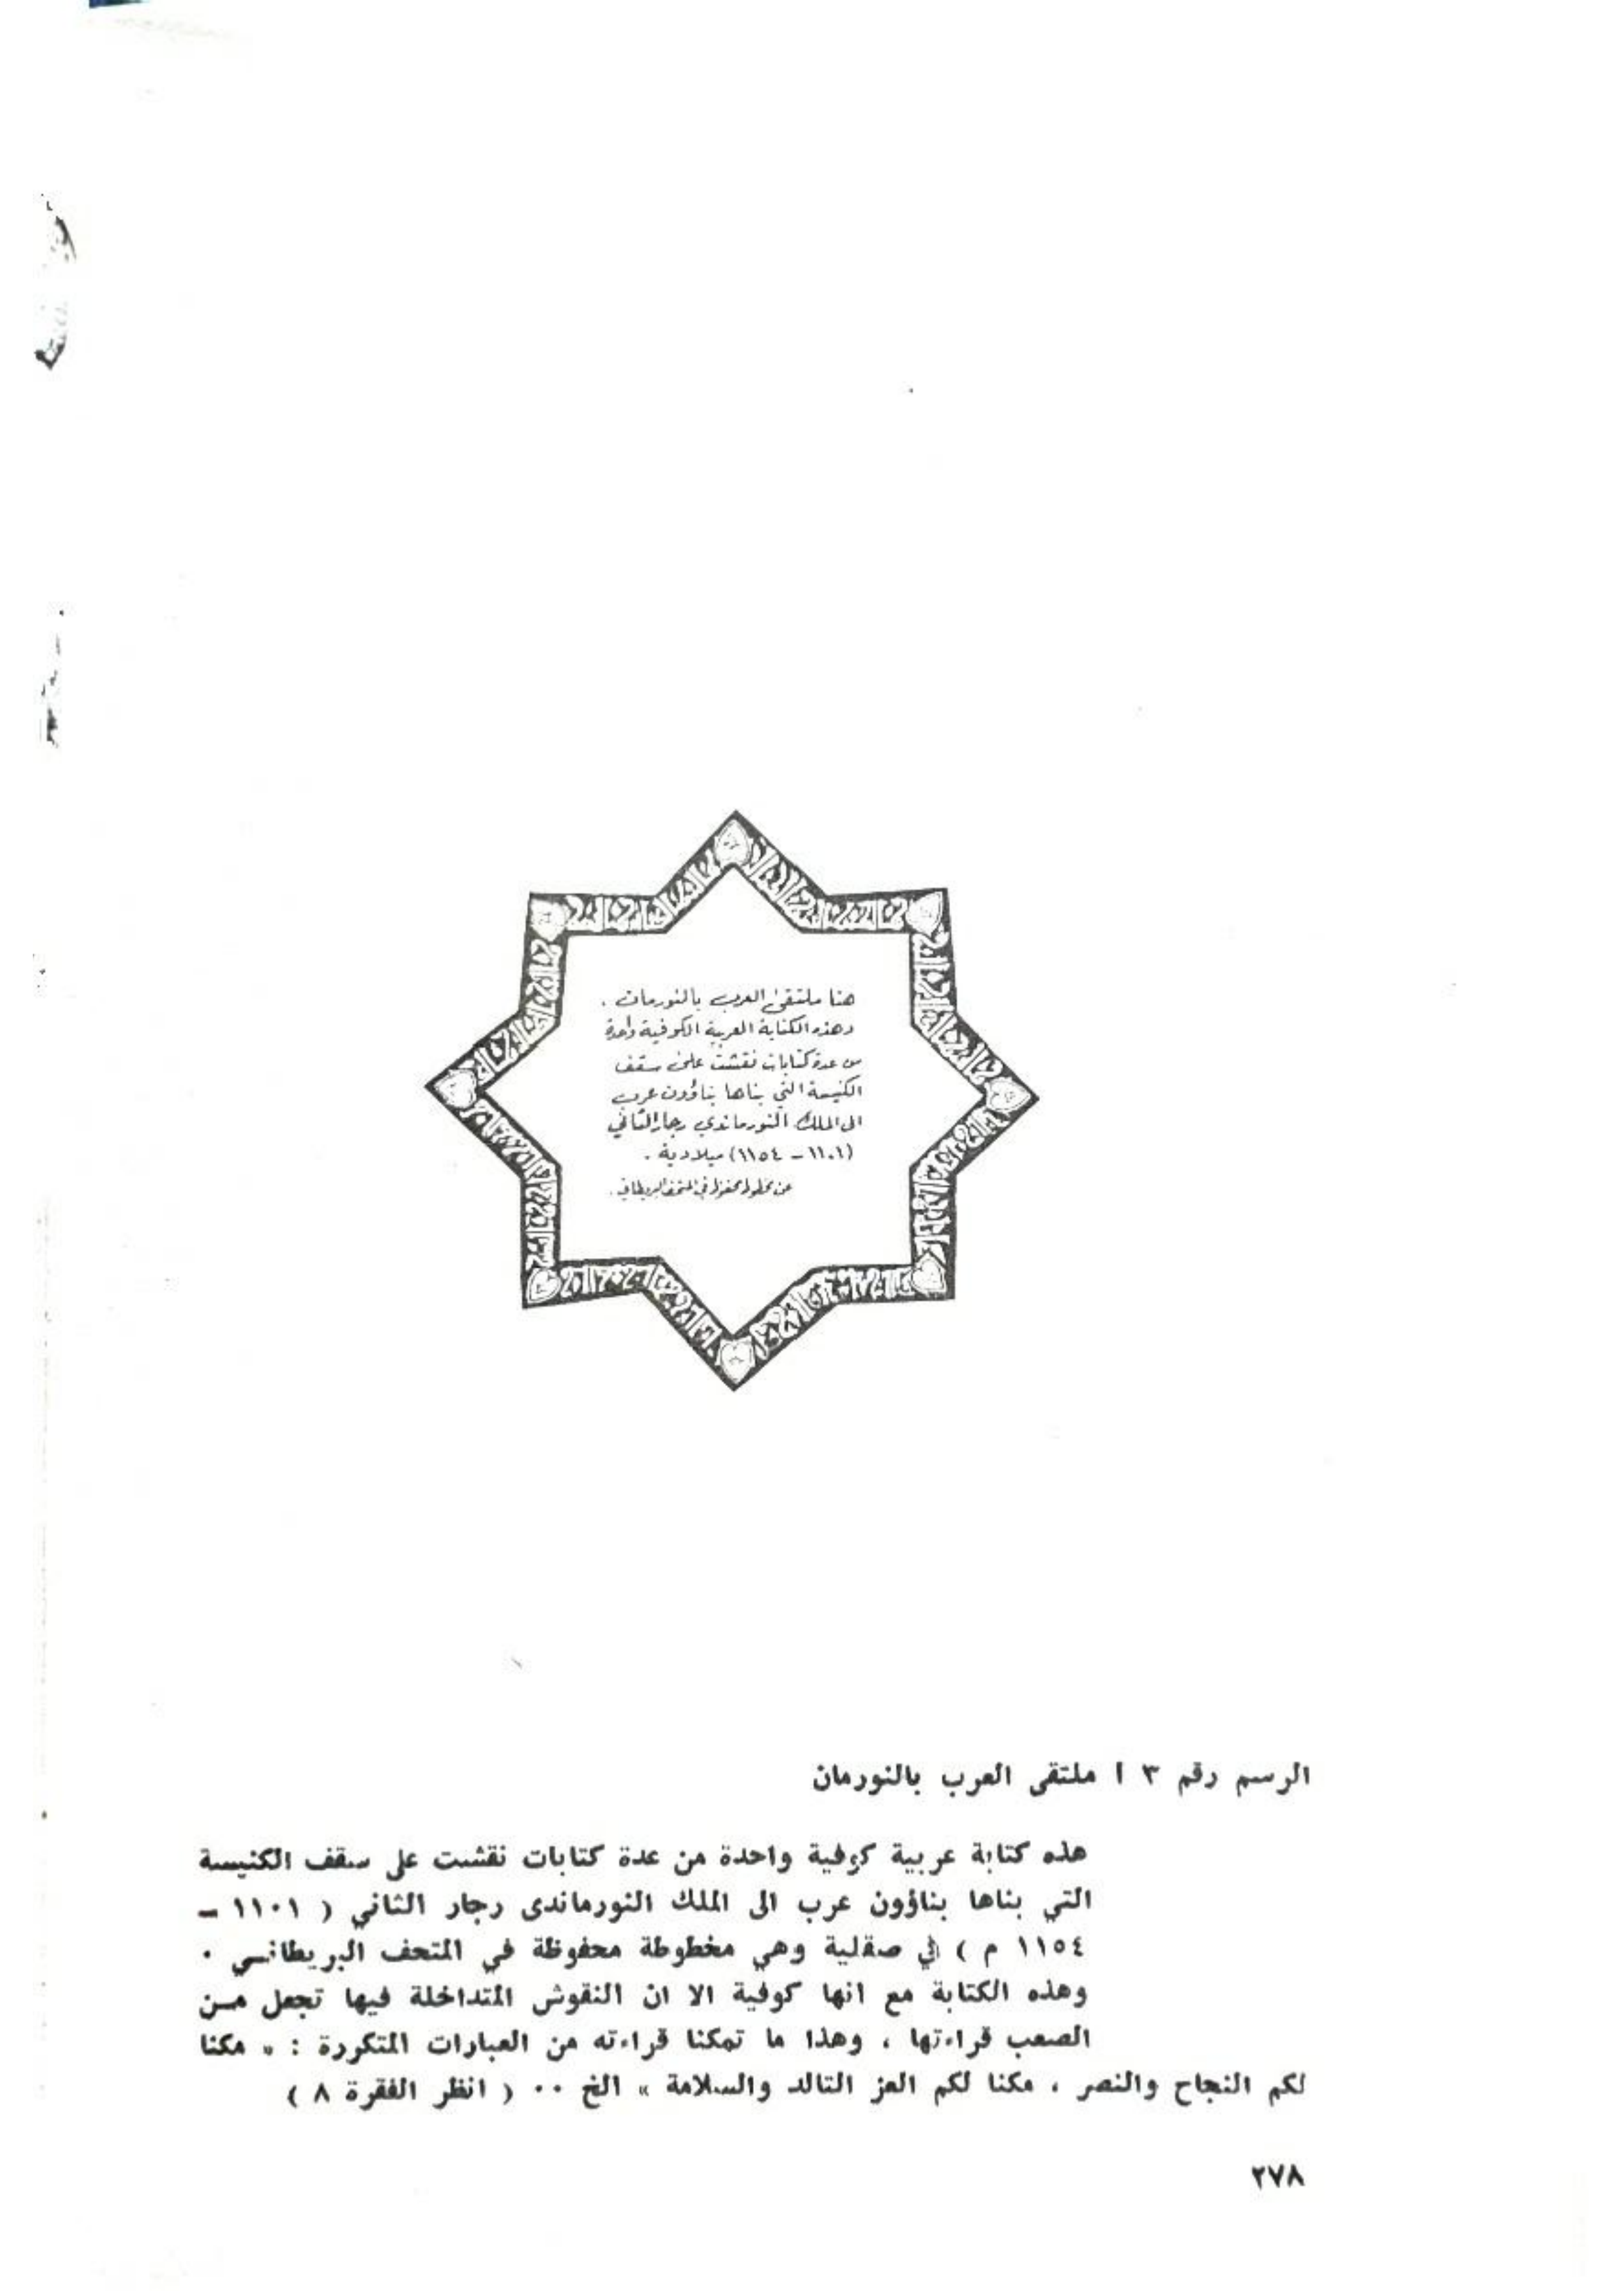 هنا ملتقى العرب بالنورمان .
وهذه الكتابة العربية الكوفية واحدة
من عدة كتابات نقشت على سقف
الكنيسة التي بناها بناؤون عرب
الى الملك النورماندي رجار الثاني
(١١٠١ – ١١٥٤) ميلادية .
عن مخطوط محفوظ في المتحف البريطاني .
الرسم رقم ٣ أ ملتقى العرب بالنورمان
هذه كتابة عربية كوفية واحدة من عدة كتابات نقشت على سقف الكنيسة
التي بناها بناؤون عرب الى الملك النورماندى رجار الثاني ( ١١٠١ –
١١٥٤ م ) في صقلية وهي مخطوطة محفوظة في المتحف البريطانسي ٠
وهذه الكتابة مع انها كوفية الا ان النقوش المتداخلة فيها تجعل مـن
الصعب قراءتها ، وهذا ما تمكنا قراءته من العبارات المتكررة : « مكنا
لكم النجاح والنصر ، مكنا لكم العز التالد والسلامة » الخ ٠٠ ( انظر الفقرة ٨ )
٢٧٨